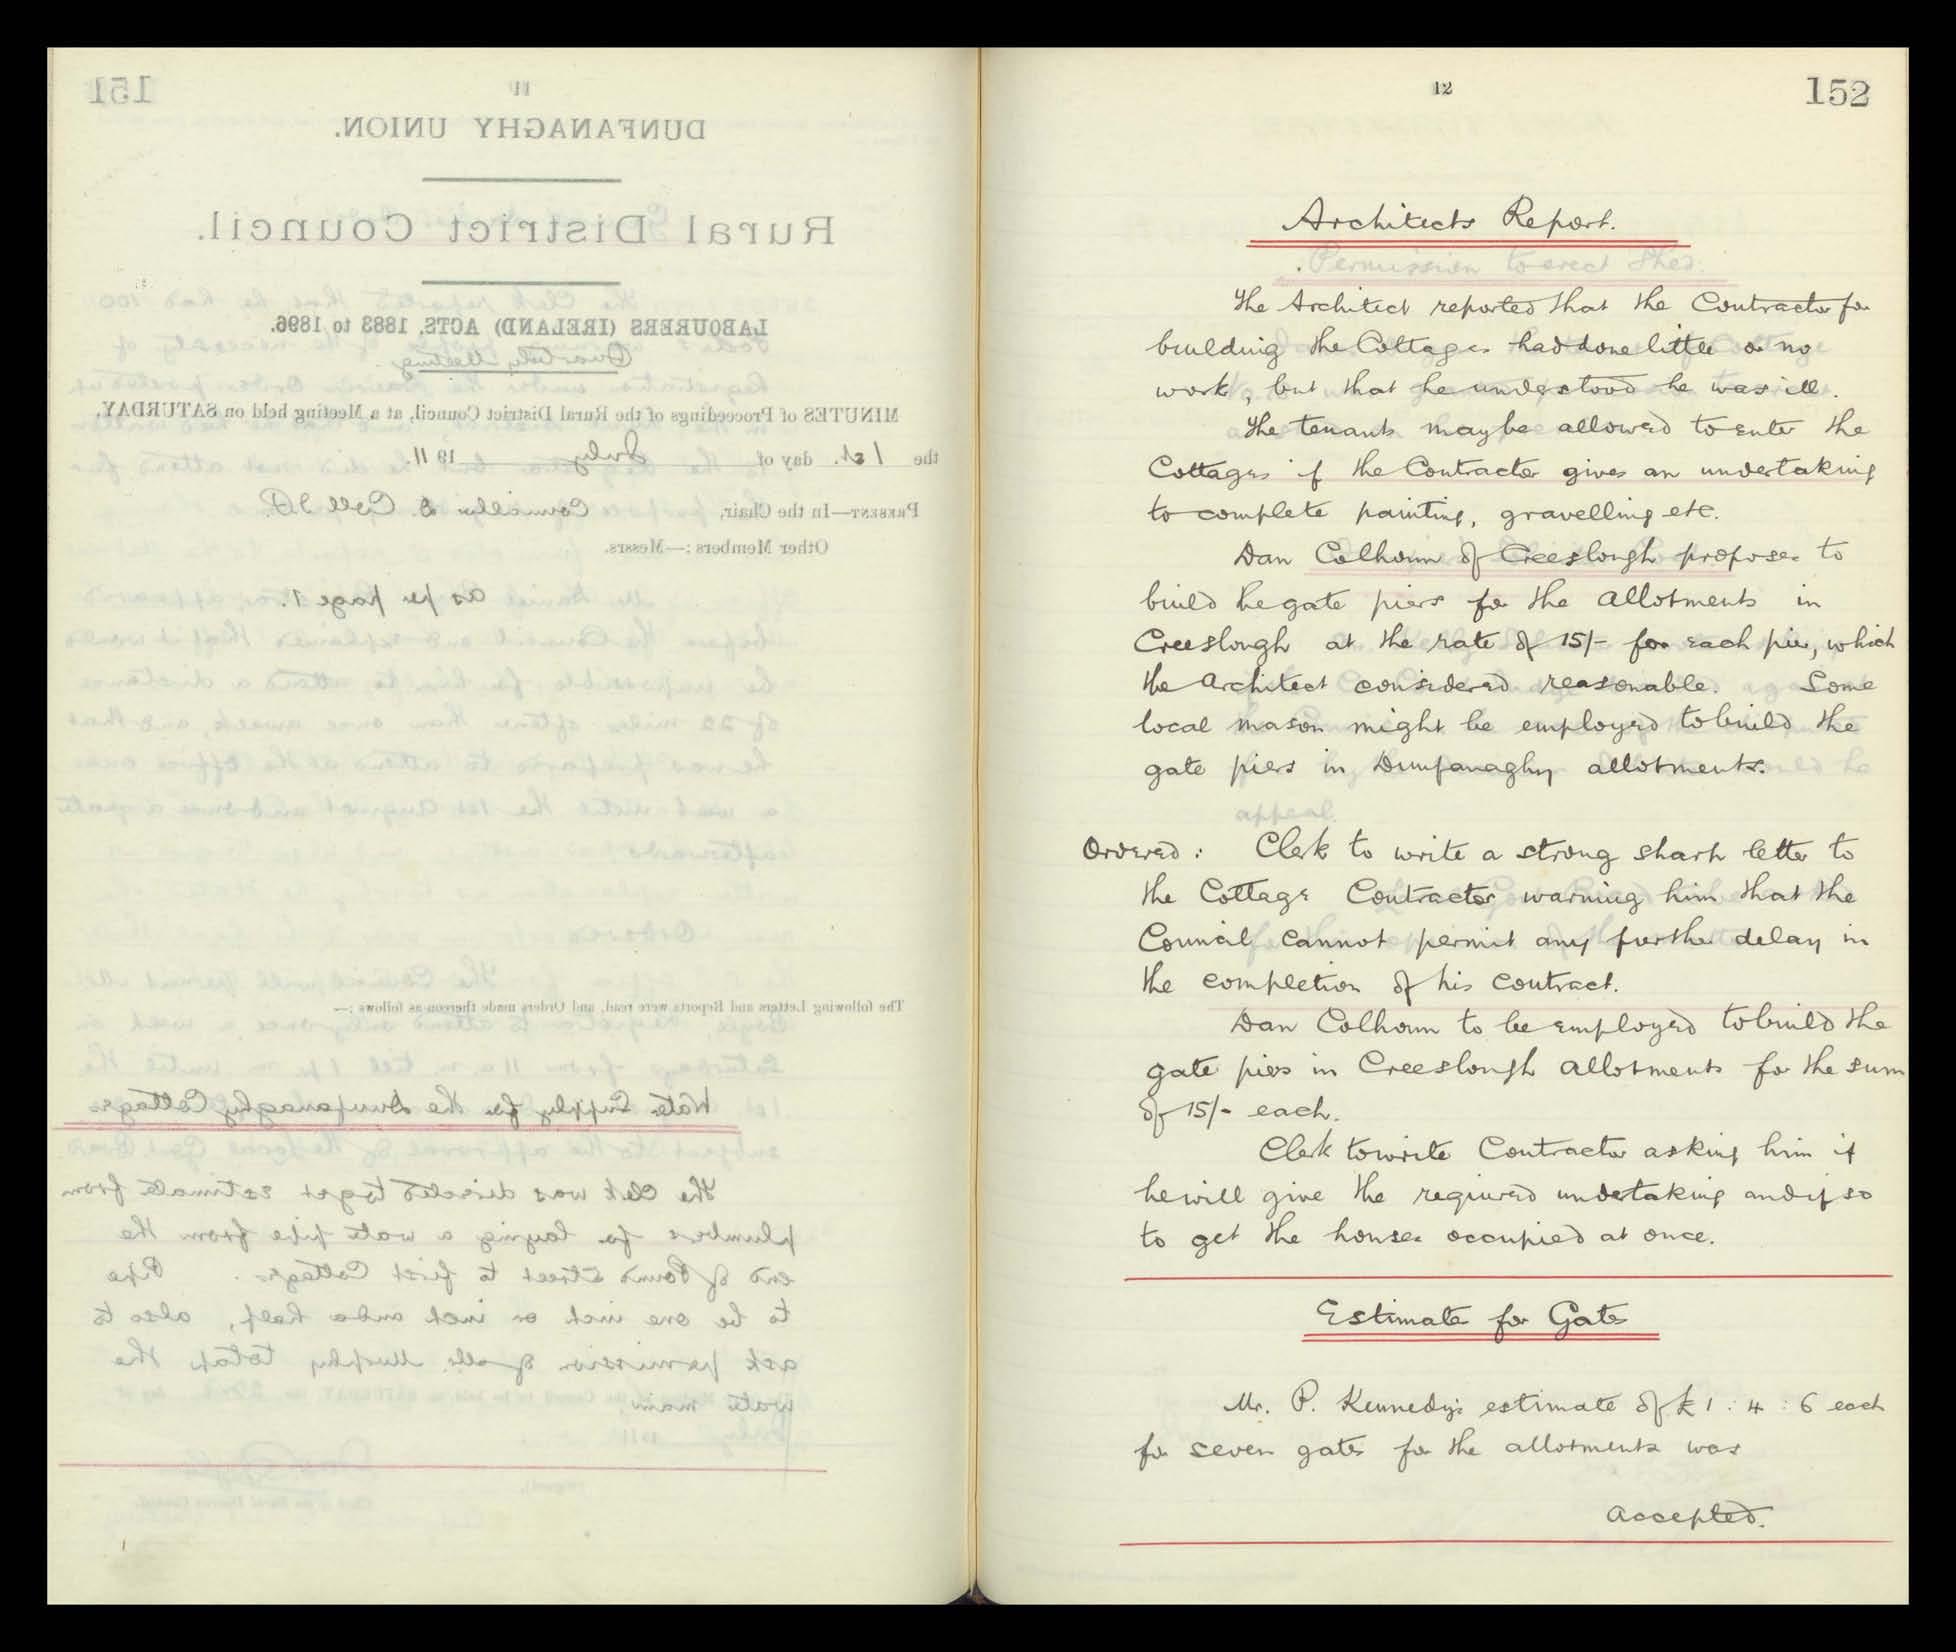 151
11
DUNFANAGHY UNION.
Rural District Council.
LABOURERS (IRELAND) ACTS, 1883 to 1896.
Quarterly Meeting
MINUTES of Proceedings of the Rural District Council, at a Meeting held on SATURDAY,
the 1st. day of July 1911.
PRESENT—In the Chair, Councillor D. Coll J.P.
Other Members:—Messrs.
as per page 1.
The following Letters and Reports were read, and Orders made thereon as follows:—
Water Supply for the Dunfanaghy Cottages
The Clerk was directed to get estimate from
plumbers for laying a water pipe from the
end of Pound Street to first Cottages. Pipe
to be one inch or inch and a half, also to
ask permission of Murphy to tap the
water main.
12
152
Architects Report.
Permission to erect Shed.
The Architect reported that the Contractor for
building the Cottages had done little or no
work, but that he understood he was ill.
The tenants may be allowed to enter the
Cottages if the Contractor gives an undertaking
to complete painting, gravelling etc.
Dan Colhoun of Creeslough proposes to
build he gate piers for the allotments in
Creeslough at the rate of 15/- for each pier, which
the Architect considered reasonable. Some
local mason might be employed to build the
gate piers in Dunfanaghy allotments.
appeal.
Ordered: Clerk to write a strong sharp letter to
the Cottage Contractor warning him that the
Council cannot permit any further delay in
the completion of his contract.
Dan Colhoun to be employed to build the
gate piers in Creeslough allotments for the sum
of 15/- each.
Clerk to write Contractor asking him if
he will give the required undertaking and if so
to get the houses occupied at once.
Estimate for Gates
Mr. P. Kennedy's estimate of £1:4:6 each
for seven gates for the allotments was
accepted.